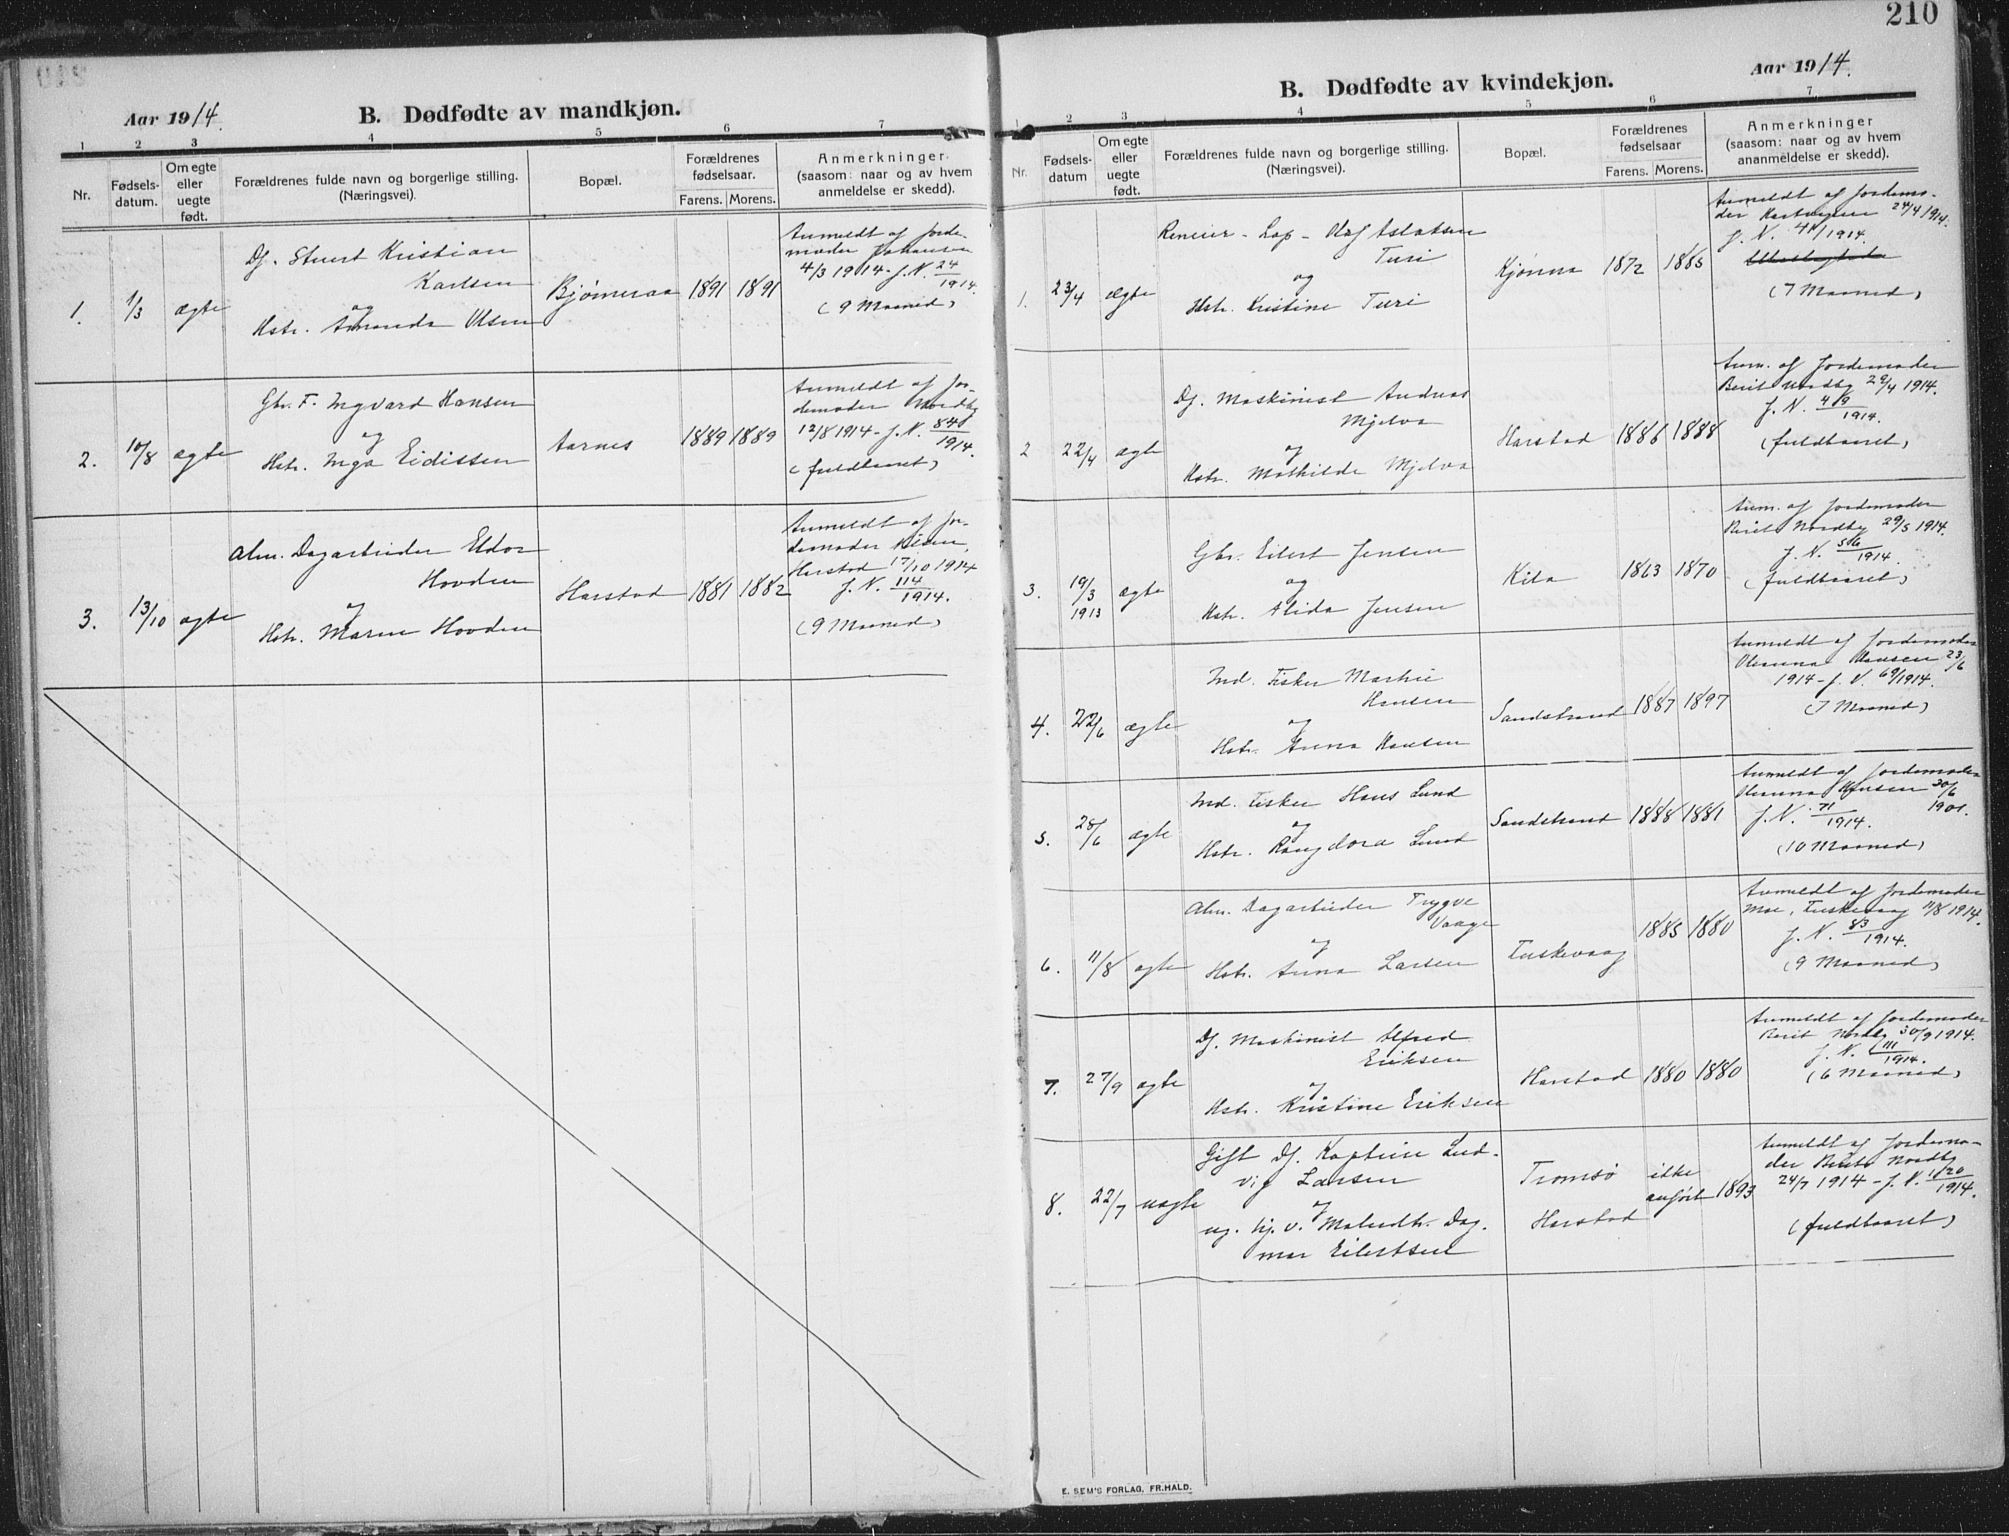 Aar 1914.
B. Dødfødte av mandkjøn.
1 2 3 4 5 6 7
Nr.
Fødsels-
datum.
Om egte
eller
uegte
født.
Forældrenes fulde navn og borgerlige stilling.
(Næringsvei).
Bopæl.
Forældrenes
fødselsaar.
Farens. Morens.
Anmerkninger
(saasom: naar og av hvem
anmeldelse er skedd).
1. 1/3 ægte
Df. Stuert Kristian
Karlsen
og
Hstr. Amanda Olsen
Bjørneraa 1891 1891
Anmeldt af Jorde-
moder Johansen
4/3 1914 - J. N. 24/1914.
(9 Maaned)
2. 10/8 ægte
Gbr. F. Ingvard Hansen
og
Hstr. Inga Eidissen
Aarnes 1889 1889
Anmeldt af Jor-
demoder Nordby
12/8 1914 - J. N. 84/1914.
(fuldbaaret)
3. 13/10 ægte
Alm. Dagarbeider Eldor
Hovden
og
Hstr. Maren Hovden
Harstad 1881 1882
Anmeldt af Jor-
demoder
Harstad 17/10 1914
J. N. 114/1914.
(9 Maaned)
210
Aar 1914.
B. Dødfødte av kvindekjøn.
1 2 3 4 5 6 7
Nr.
Fødsels-
datum
Om egte
eller
uegte
født.
Forældrenes fulde navn og borgerlige stilling.
(Næringsvei).
Bopæl.
Forældrenes
fødselsaar
Farens. Morens.
Anmerkninger
(saasom: naar og av hvem
ananmeldelse er skedd).
1. 23/4 ægte
Reneier - Lap - Olaf Aslaksen
Turi
og
Hstr. Kristine Turi
Kjønna 1872 1885
Anmeldt af Jordemo-
der 24/4 1914.
J. N. 41/1914.
(7 Maaned)
2 22/4 ægte
Df. Maskinist Andreas
Mjelva
og
Hstr. Mathilde Mjelva
Harstad 1886 1888
Anm. af Jordemoder
Berit Nordby 29/4 1914.
J. N. 49/1914.
(fuldbaaret)
3. 19/3 1913 ægte
Gbr. Eilert Jensen
og
Hstr. Alida Jensen
Kila 1863 1870
Anm. af Jordemoder
Berit Nordby 29/5 1914.
J. N. 56/1914.
(fuldbaaret)
4. 22/6 ægte
Ind. Fisker Martin
Hansen
og
Hstr. Anna Hansen
Sandstrand 1887 1897
Anmeldt af Jordemoder
Oleanna Hansen 23/6
1914 - J. N. 69/1914.
(7 Maaned)
5. 28/6 ægte
Ind. Fisker Hans Lund
og
Hstr. Rangdora Lund
Sandstrand 1888 1881
Anmeldt af Jordemoder
Oleanna Hansen 30/6
J. N. 71/1914. 1901.
(10 Maaned)
6. 11/8 ægte
Alm. Dagarbeider Trygve
Vaage
og
Hstr. Anna Larsen
Fuskevaag 1885 1880
Anmeldt af Jordemoder
Moe, Fuskevaag 11/8 1914.
J. N. 83/1914.
(9 Maaned)
7. 27/9 ægte
Df. Maskinist Alfred
Eriksen
og
Hstr. Kristine Eriksen
Harstad 1880 1880
Anmeldt af Jordemoder
Berit Nordby 30/9 1914.
J. N. 111/1914.
(6 Maaned)
8. 22/7 uægte
Gift Df. Kaptein Lud-
vig Larsen
og
ug. Kj. v. Dag-
mar Eilertsen
Tromsø
Harstad
ikke
anført 1893
Anmeldt af Jordemo-
der Berit Nordby
24/7 1914 - J. N. 120/1914.
(fuldbaaret)
E. SEM'S FORLAG, FR.HALD.